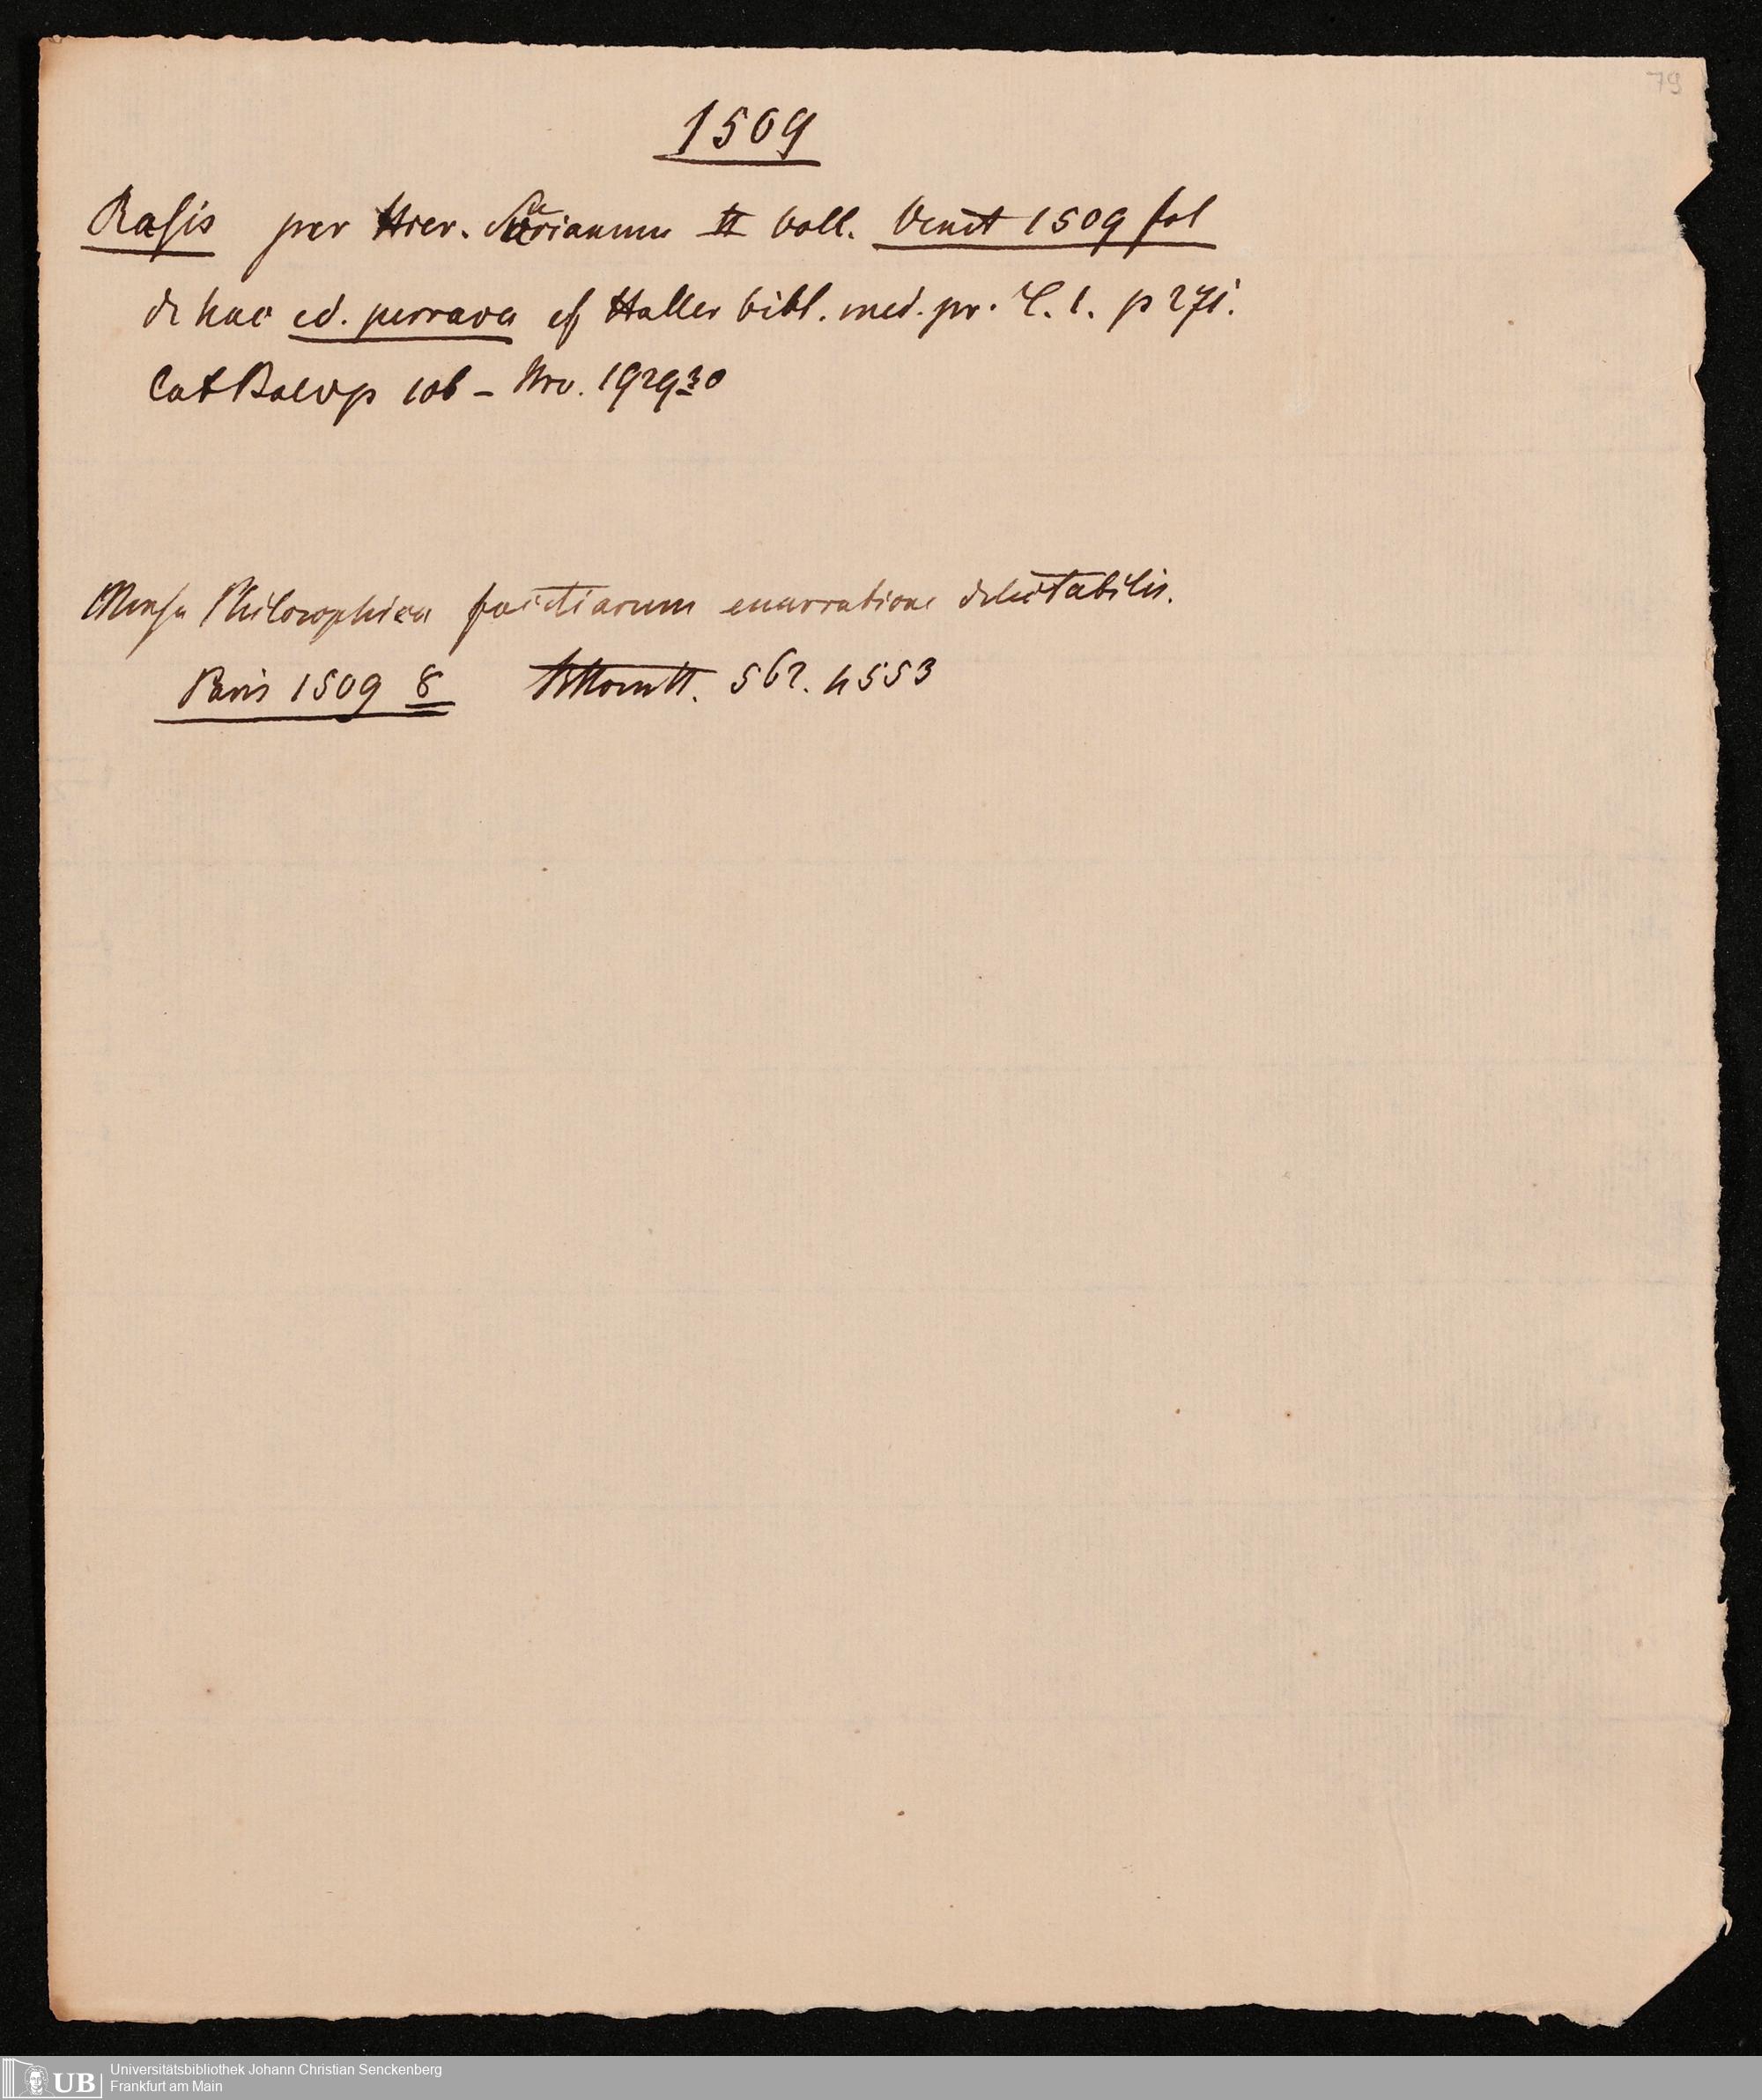 79
1509
Rasis per Hier. Surianum II voll. Venet 1509 fol
de hac ed. perrara cf Haller bibl. med. pr. T. 1. p 271.
Cat Bald p 106 - Nro. 192930
Mensa Philosophica facetiarum enarratione delectabilis.
Paris 1509 8 562. 4553
UB
Universitätsbibliothek Johann Christian Senckenberg
Frankfurt am Main